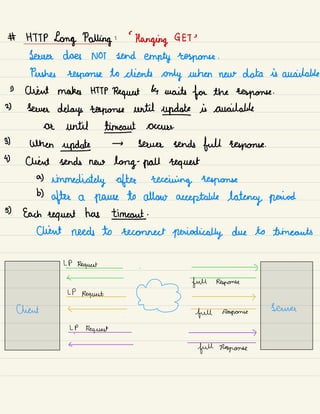 # HTTP Long Polling: 'Hanging GET'
Server does NOT send empty response.
Pushes response to clients only when new data is available
1) Client makes HTTP Request & waits for the response.
2) Server delays response until update is available
or until timeout occurs
3) When update → Server sends full response.
4) Client sends new long-poll request
a) immediately after receiving response
b) after a pause to allow acceptable latency period
5) Each request has timeout.
Client needs to reconnect periodically due to timeouts
LP Request
full Response
LP Request
Client
full Response
Server
LP Request
full Response